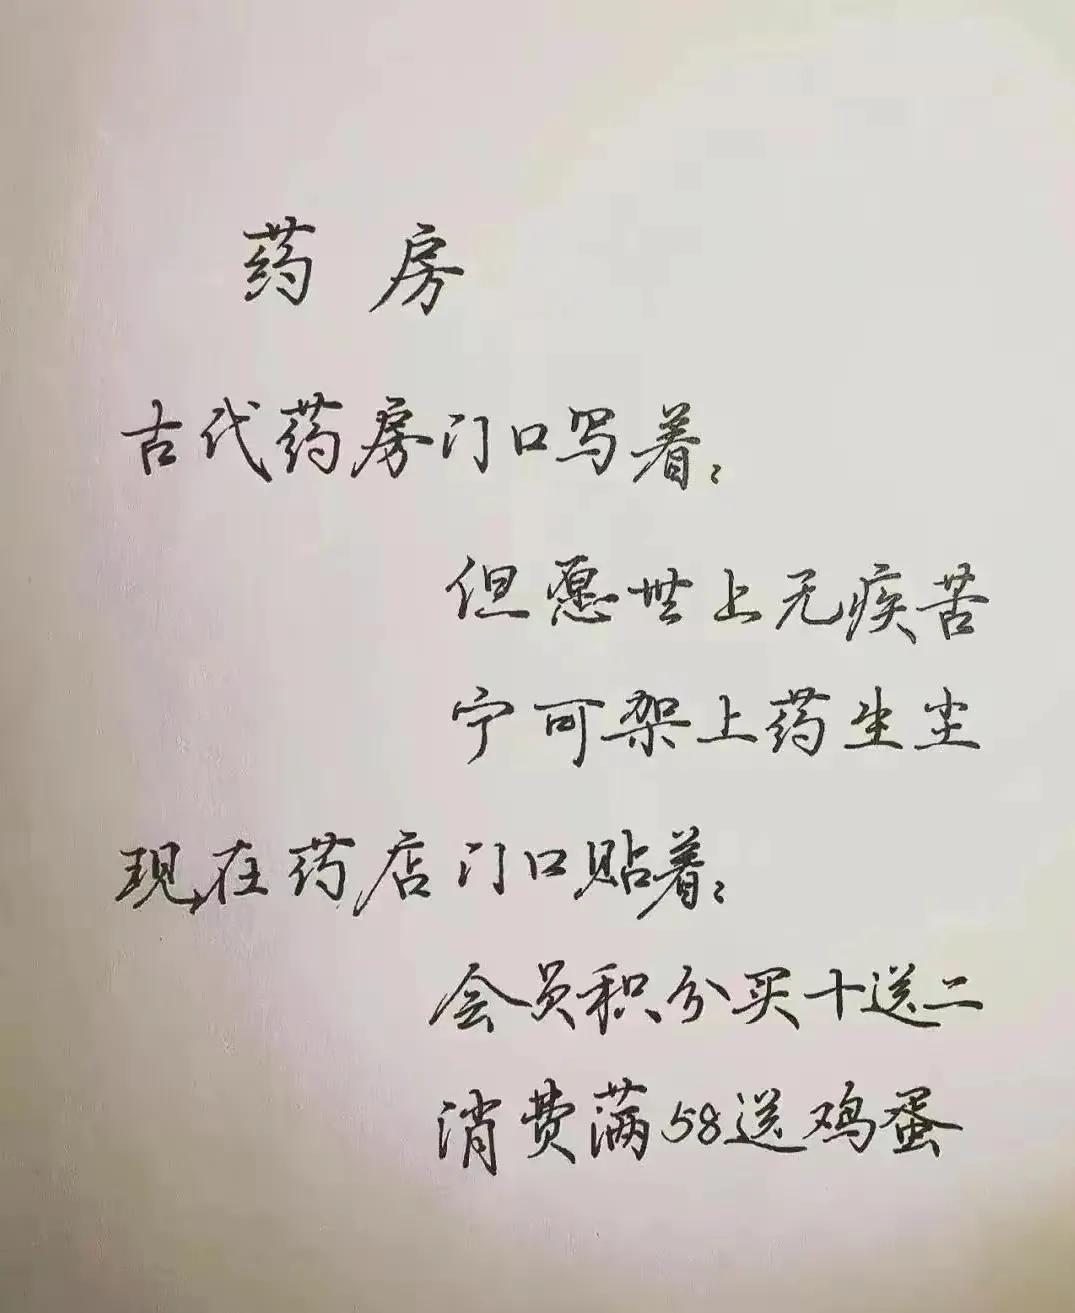 药房
古代药房门口写着：
但愿世上无疾苦
宁可架上药生尘
现在药店门口贴着：
会员积分买十送二
消费满58送鸡蛋